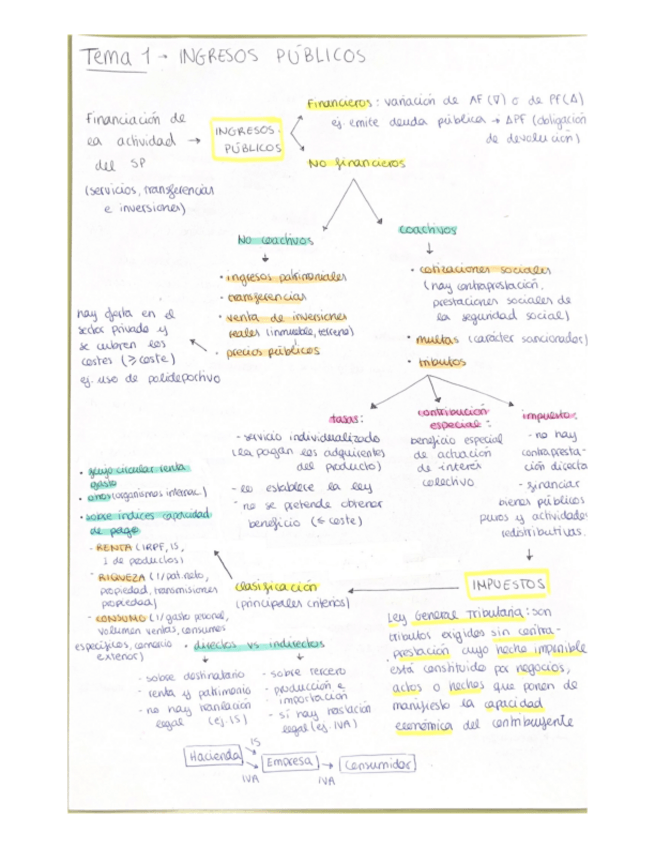 Tema 1 - INGRESOS PÚBLICOS
Financiación de
la actividad →
del SP
(servicios, transferencias
e inversiones)
INGRESOS
PÚBLICOS
Financieros: variación de AF (∇) o de PF (Δ)
ej. emite deuda pública → ΔPF (obligación
de devolución)
No financieros
No coactivos
· ingresos patrimoniales
· transferencias
· venta de inversiones
reales (inmueble, terreno)
· precios públicos
hay oferta en el
sector privado y
se cubren los
costes (≥ coste)
ej. uso de polideportivo
coactivos
· cotizaciones sociales
(hay contraprestación,
prestaciones sociales de
la seguridad social)
· multas (carácter sancionador)
· tributos
tasas:
- servicio individualizado
(la pagan los adquirentes
del producto)
- lo establece la ley
- no se pretende obtener
beneficio (≤ coste)
contribución
especial:
beneficio especial
de actuación
de interés
colectivo
impuesto:
- no hay
contrapresta-
ción directa
- financiar
bienes públicos
puros y actividades
redistributivas.
IMPUESTOS
Ley General Tributaria: son
tributos exigidos sin contra-
prestación cuyo hecho imponible
está constituido por negocios,
actos o hechos que ponen de
manifiesto la capacidad
económica del contribuyente
clasificación
(principales criterios)
· flujo circular renta
gasto
· otros (organismos internac.)
· sobre índices capacidad
de pago
- RENTA (IRPF, IS,
I de productos)
- RIQUEZA (I/pat.neto,
propiedad, transmisiones
propiedad)
- CONSUMO (I/gasto personal,
volumen ventas, consumos
específicos, comercio
exterior)
· directos vs indirectos
- sobre destinatario
- renta y patrimonio
- no hay traslación
legal (ej. IS)
- sobre tercero
- producción e
importación
- sí hay traslación
legal (ej. IVA)
IS
Hacienda
Empresa
Consumidor
IVA
IVA